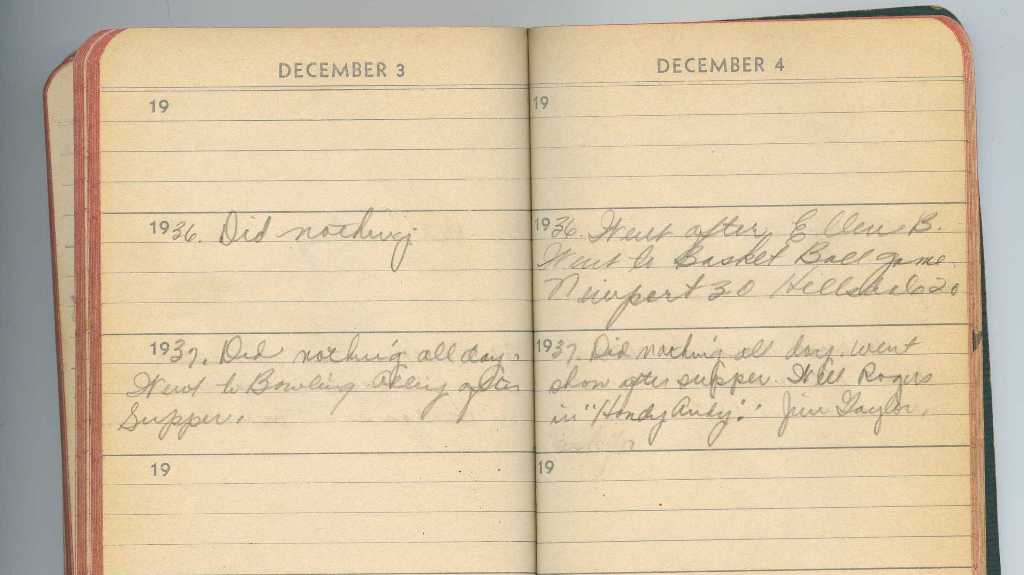 DECEMBER 3
19
1936. Did nothing.
1937. Did nothing all day.
Went to Bowling Alley after
Supper.
19
DECEMBER 4
19
1936. Went after Ellen B.
Went to Basket Ball game
Newport 30 20
1937. Did nothing all day. went
show after supper. Will Rogers
in "Handy Andy". Jim Taylor.
19